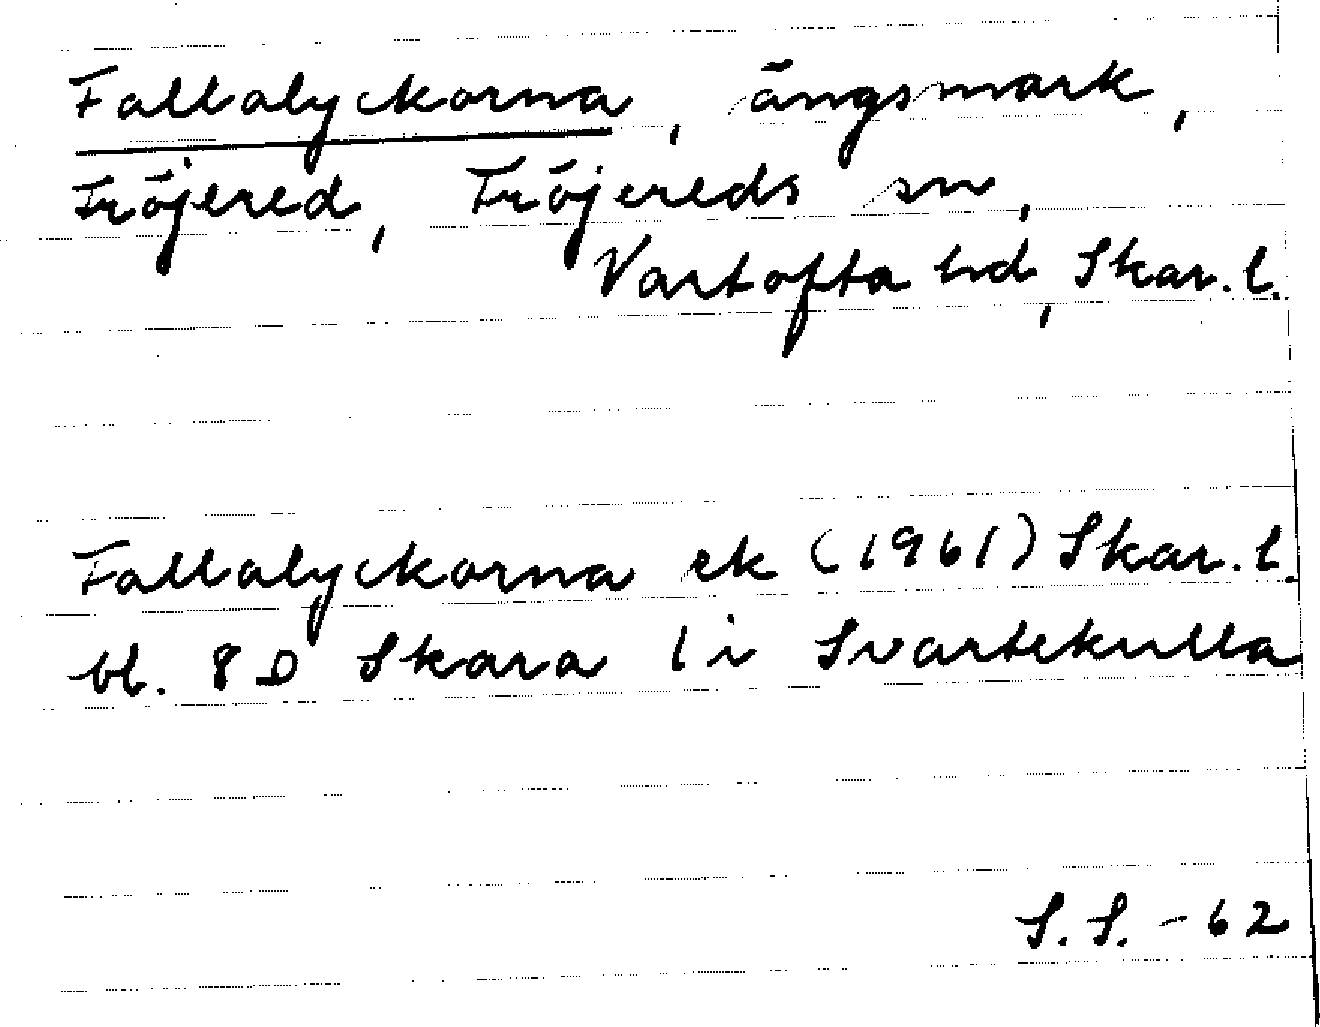 Fallalyckorna, ängsmark,
Fröjered, Fröjereds sn,
Vartofta hd, Skar. l.
Fallalyckorna ek (1961) Skar. l.
bl. 8 D Skara 1 i Svartekulla
S.S. -62